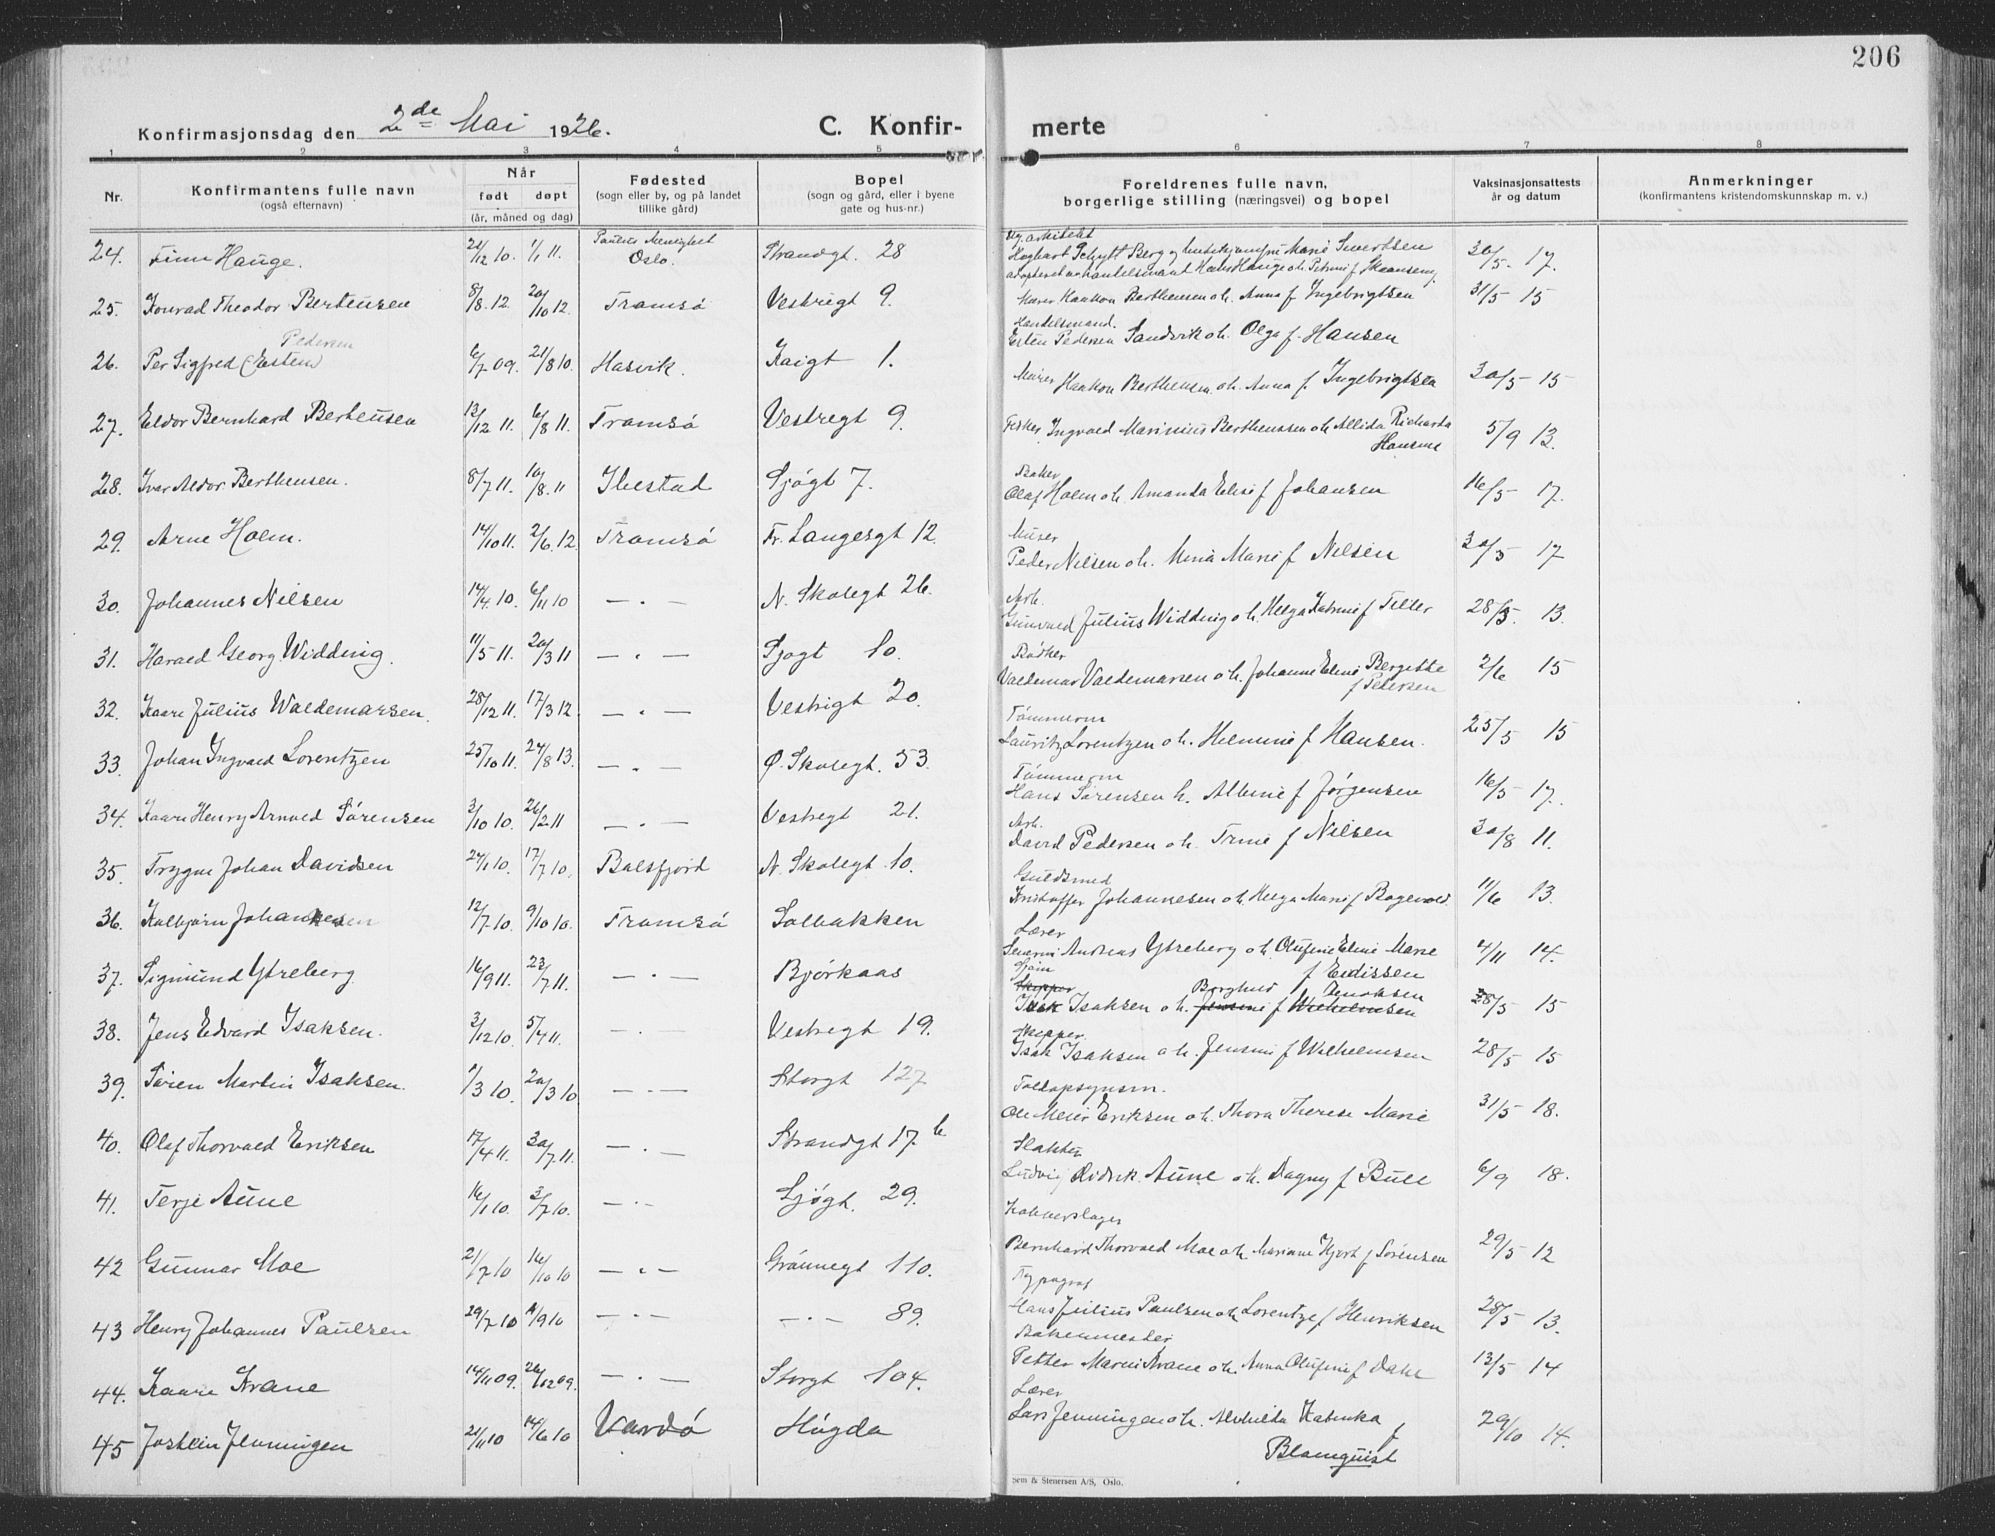 206
Konfirmasjonsdag den 2de Mai 1926. C. Konfir- merte
1 2 3 4 5 6 7 8
Nr. Konfirmantens fulle navn (også efternavn) Når født døpt (år, måned og dag) Fødested (sogn eller by, og på landet tillike gård) Bopel (sogn og gård, eller i byene gate og hus-nr.) Foreldrenes fulle navn, borgerlige stilling (næringsvei) og bopel Vaksinasjonsattests år og datum Anmerkninger (konfirmantens kristendomskunnskap m. v.)
24. Finn Hauge. 21/12 10. 1/1 11. Paulus Menighet Oslo. Strandgt. 28 arkitekt Schytt Berg Marie Sivertsen Hauge 30/5 - 17.
25. Konrad Theodor Bertensen 8/8. 12. 20/10 12. Tromsö Vestregt 9. Murer Haakon Berthensen o h. Anna f Ingebrigtsen 31/5 15
26. Per Sigfred (Esten) Pedersen 6/7 09. 21/8 10. Hasvik. Kaigt 1. Handelsmand. Esten Pedersen Sandvik o h. Olga f. Hansen
27. Eldor Bernhard Berteusen 13/12 11. 6/8 11. Tromsö Vestregt 9. Murer Haakon Berthensen o h. Anna f Ingebrigtsen 30/5 - 15
28. Ivar Aldor Berthensen. 8/7 11. 10/8. 11 Ibestad Sjøgt 7. Fisker Ingvald Marinius Berthenssen o h Allida Richarda Hansen 5/9 13.
29. Arne Holm. 14/10 11. 2/6. 12. Tromsö Fr. Langesgt 12. Baker Olaf Holm o h. Amanda Elise f Johansen 16/5 - 17.
30. Johannes Nilsen 14/4. 10. 6/11 10 — . — N. Skolegt 26. Murer Peder Nilsen o h. Mina Marie f Nilsen 30/5 17
31. Harald Georg Widding. 11/5 11. 20/3 11 — . — Sjøgt 10. Arb. Gunvald Julius Widding o h. Helga Katrine f Tiller 28/5. 13.
32. Kaare Julius Waldemarsen. 28/12 11. 17/3 12. — . — Vestregt 20. Bödker Valdemar Valdemarsen o h. Johanne Eline Bergette f Pedersen 2/6 15
33. Johan Ingvald Lorentzen 25/10 11. 24/8 13. — . — Ø. Skolegt. 53. Tömmerm Lauritz Lorentzen o h. Helmine f Hansen. 25/5 15
34. Kaare Henry Arnold Sörensen 3/10 10. 26/2 11 — . — Vestregt 21. Tömmerm Hans Sörensen h. Albine f Jørgensen 16/5 - 17.
35. Trygve Johan Davidsen 24/1 10. 17/7 10. Balsfjord N. Skolegt. 10. Arb. David Pedersen o h. Trine f Nilsen 30/8 11.
36. Kolbjørn Johannesen 12/7 10. 9/10 10. Tromsö Solbakken Guldsmed Kristoffer Johannesen o h. Helga Marie f 11/6 13.
37. Sigmund Ytreberg 16/9 11. 23/7 11. — . — Bjørkaas Lærer Severin Andreas Ytreberg o h. Olufine Eline Marie f Eidissen 4/11 14.
38. Jens Edvard Isaksen. 3/12 10. 5/4 11. — . — Vestregt 19. Skipper Isak Isaksen o h. Jensine Borghild f Wilhelmsen Enoksen 28/5 15
39. Sören Martin Isaksen. 1/3 10. 20/3 10 — . — Storgt 127 Skipper Isak Isaksen o h. Jensine f Wilhelmsen 28/5 15
40. Olaf Thorvald Eriksen 17/4 11. 30/7 11. — . — Strandgt 17. b Toldopsynsm. Ole Meier Eriksen o h. Thora Therese Marie 31/5 - 18.
41. Terje Aune 16/1 10. 3/7 10. — . — Sjøgt. 29. Slakter Ludvig Aune o h. Dagny f Bull 6/9 18.
42 Gunnar Moe 21/7 10 16/10 10 — . — Grönnegt 110. Kobberslager Bernhard Thorvald Moe o h Mariane Hjort f Sörensen 29/5 12
43 Henry Johannes Paulsen 29/7 10 4/9 10 — . — — . — 89. Typograf Hans Julius Paulsen o h. Lorentze f Henriksen 28/5 13.
44. Kaare Krane 14/11 09. 26/12 09. — . — Storgt 104. Bakermester Petter Krane o h. Anna Olufine f Dahl 13/5 14
45 Jostein Jenningen 21/11 10 14/6 10 Vardö Högda Lærer Lars Jenningen o h. Alvhilda Katinka f Blomquist 29/10 14.
Sem & Stenersen A/S, Oslo.